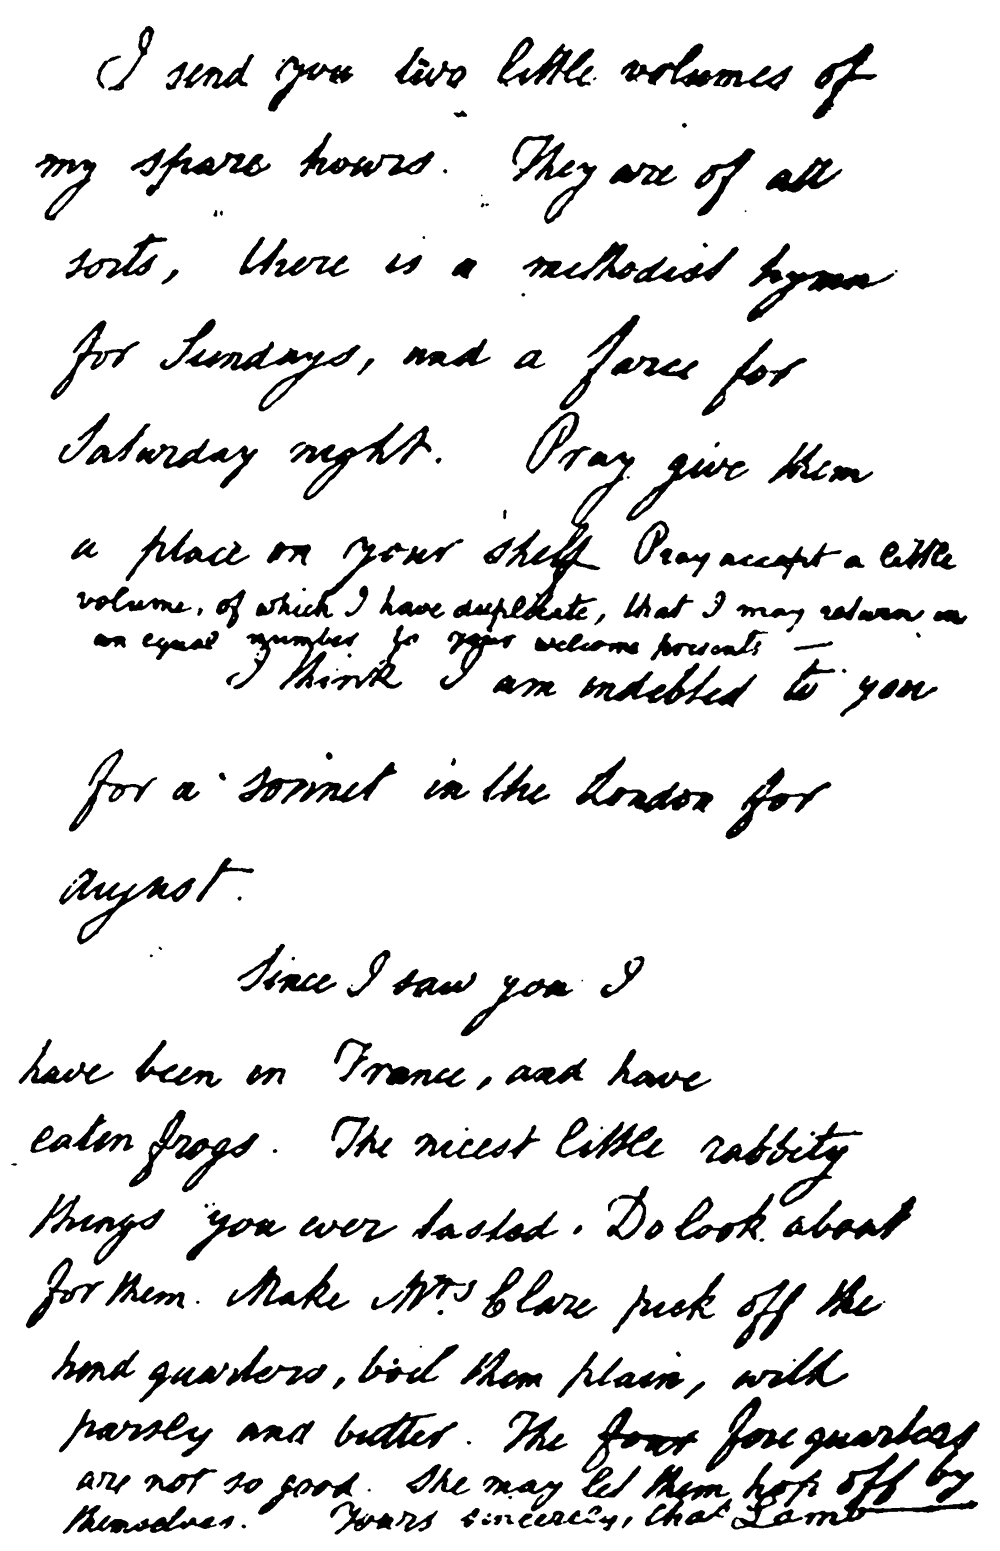 I send you two little volumes of
my spare hours. They are of all
sorts, there is a methodist hymn
for Sundays, and a farce for
Saturday night. Pray give them
a place on your shelf Pray accept a little
volume, of which I have duplicate, that I may return in
an equal number to your welcome presents —
I think I am indebted to you
for a sonnet in the London for
august.
Since I saw you I
have been in France, and have
eaten frogs. The nicest little rabbity
things you ever tasted. Do look about
for them. Make Mrs. Clare pick off the
hind quarters, boil them plain, with
parsley and butter. The four fore quarters
are not so good. She may let them hop off by
themselves. Yours sincerely, Chas Lamb